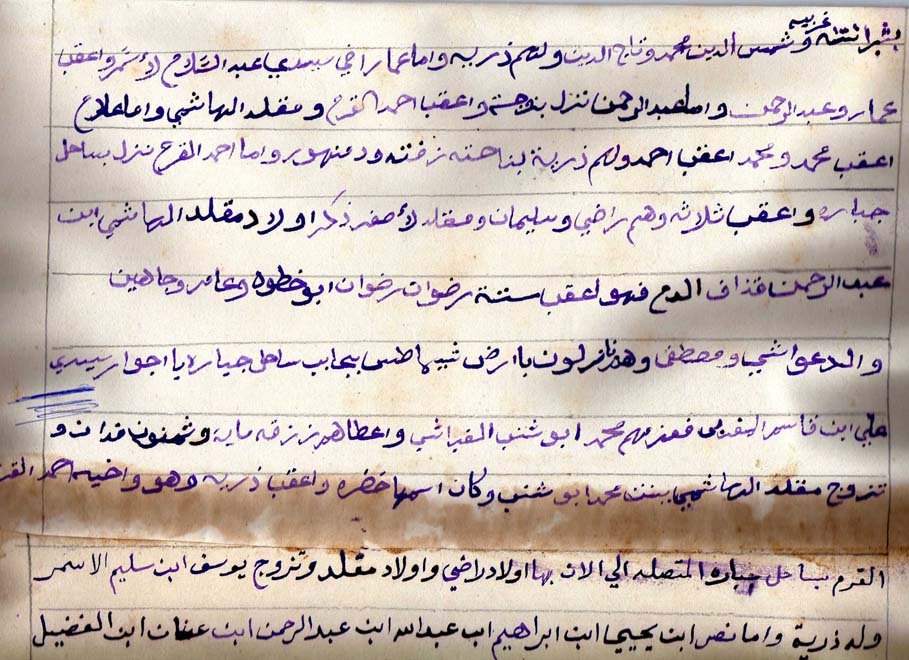 بشرانتنه غربيه وشمس الدين محمد وتاج الدين ولهم ذريه واما عمارا في سيدي عبد السلام لأسمر واعقب
عمار وعبد الرحمن واما عبد الرحمن نزل واعقب احمد القرم ومقلد الهاشمي واما علاج
اعقب محمد ومحمد اعقب احمد ولهم ذرية بناحته زفته ودمنهور واما احمد القرم نزل بساحل
جباره واعقب ثلاثه وهم راضي وسليمان ومقلد لأصغر ذكر اولاد مقلد الهاشمي ابن
عبد الرحمن قذاف الدم فهو اعقب ستة رضوان رضوان ابو خطوه وعامر وجاهين
والدعواشي ومصطفى وهم نازلون باارض بجانب ساحل جباره يا اجوار سيدي
علي ابن قاسم المغربي فعزمهم محمد ابو شنب واعطاهم رزقه مايه وثمنون فدان و
تزوج مقلد الهاشمي ببنت محمد ابو شنب وكان اسمها خضره واعقب ذريه وهو واخيه احمد
القرم بساحل جباره المتصله الي الان بها اولاد راضي واولاد مقلد وتزوج يوسف ابن سليم الاسمر
وله ذرية واما نص ابن يحييا ابن ابراهيم ابن عبد الله ابن عبد الرحمن ابن عنان ابن الفضيل